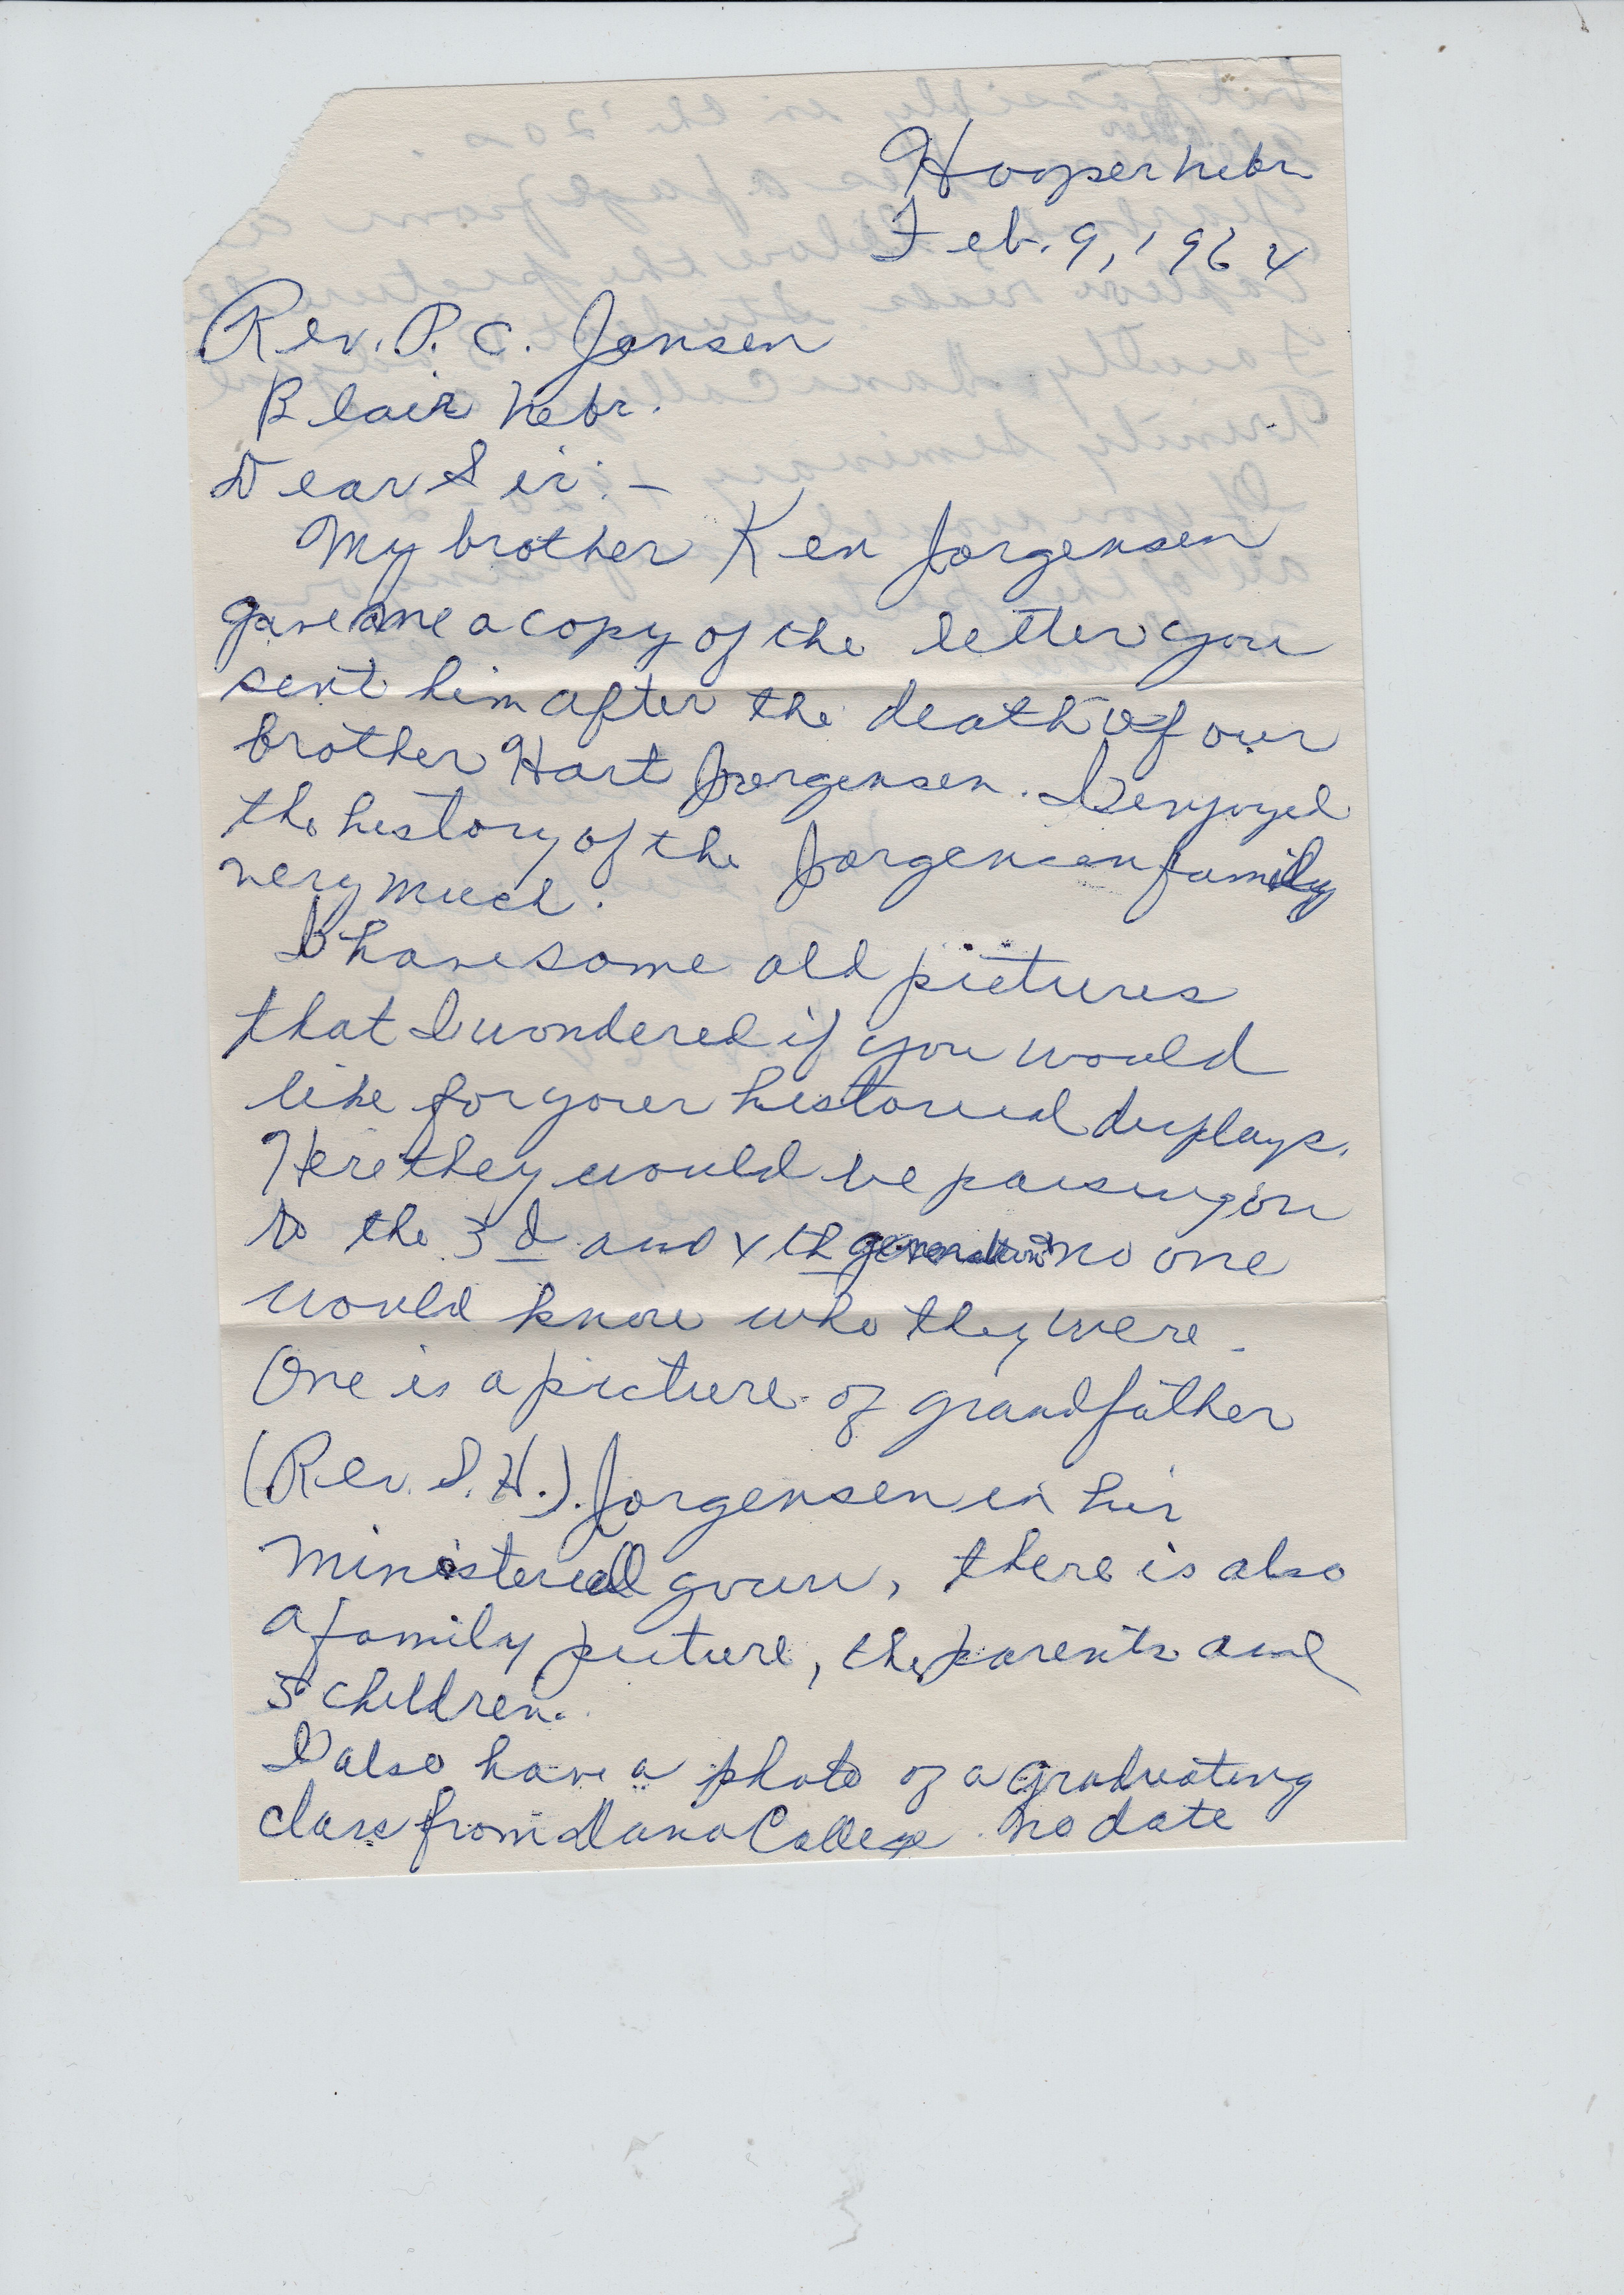 Hooper Nebr
Feb. 9, 1964
Rev. P. C. Jensen
Blair Nebr.
Dear Sir: -
My brother Ken Jorgensen
gave me a copy of the letter you
sent him after the death of our
brother Hart Jorgensen. I enjoyed
the history of the Jorgensen family
very much.
I have some old pictures
that I wondered if you would
like for your historical displays.
Here they would be passing on
to the 3d and 4th generation no one
would know who they were.
One is a picture of grandfather
(Rev. S. H.). Jorgensen in his
ministerial gown, there is also
a family picture, the parents and
5 children.
I also have a photo of a graduating
class from Dana College. No date